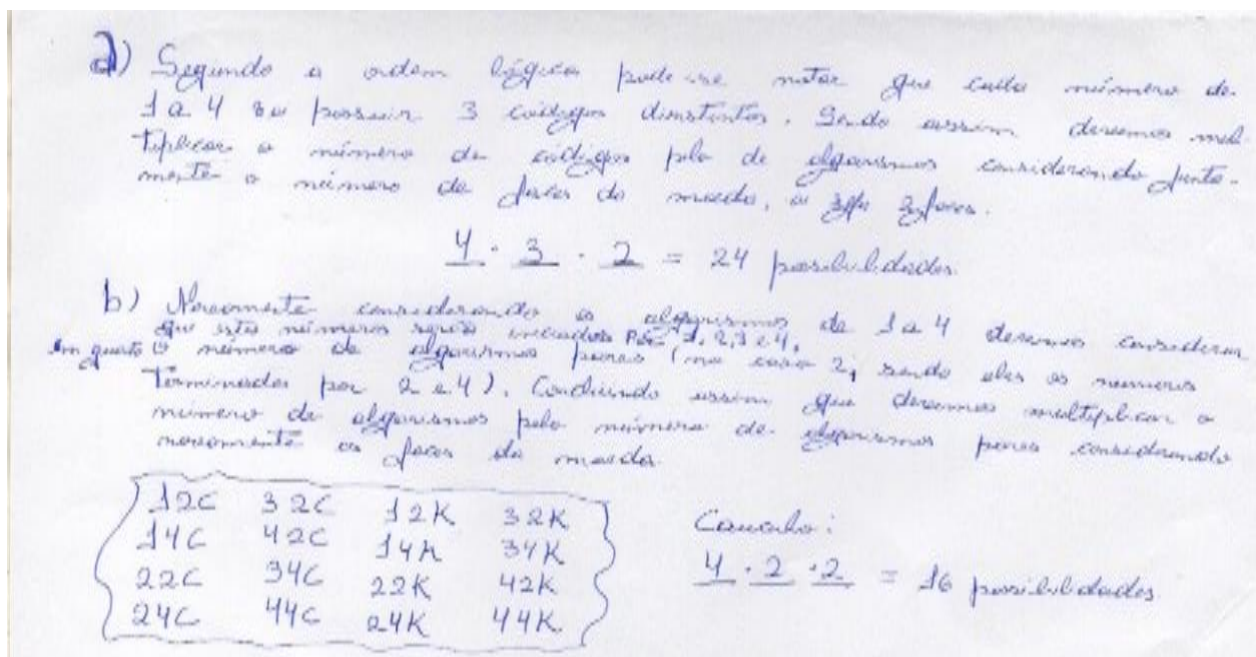 a) Segundo a ordem lógica pode-se notar que cada número de
1 a 4 possuir 3 códigos dinstintos. Sendo assim devemos mul-
tiplicar o número de códigos pelo de algarismos considerando junta-
mente o número de faces da moeda, 2 faces.
4 . 3 . 2 = 24 possibilidades
b) Novamente considerando os algarismos de 1 a 4 devemos considerar
que números iniciados por 1, 2, 3 e 4,
o número de algarismos pares (no caso 2, sendo eles os números
terminados por 2 e 4). Concluindo assim que devemos multiplicar o
número de algarismos pelo número de algarismos pares considerando
novamente as faces da moeda.
12C 32C 12K 32K
14C 42C 14K 34K
22C 34C 22K 42K
24C 44C 24K 44K
Cauculo:
4 . 2 . 2 = 16 possibilidades.